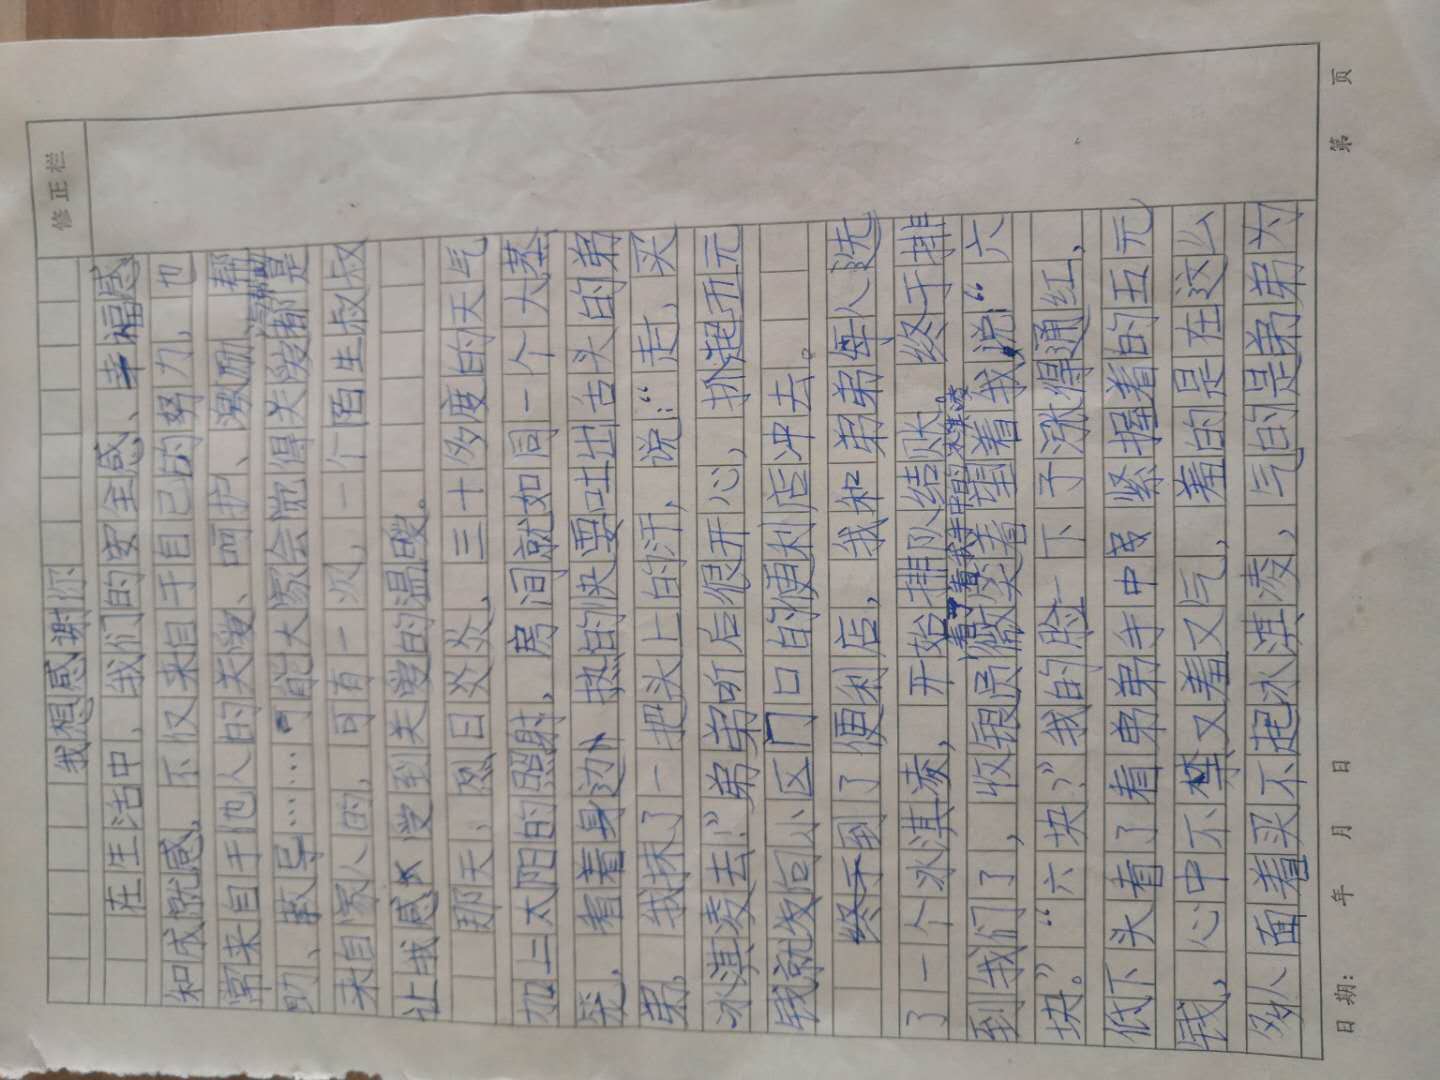 修正栏
我想感谢你
在生活中，我们的安全感、幸福感
和成就感，不仅来自于自己的努力，也
常来自于他人的关爱、呵护、激励、帮
助、教导……可能大家会觉得关爱都是
来自家人的，可有一次，一个陌生叔叔
让我感受到关爱的温暖。
那天，烈日炎炎，三十多度的天气
加上太阳的照射，房间就如同一个大蒸
笼，看着身边热的快要吐出舌头的弟
弟。我抹了一把头上的汗，说：“走，买
冰淇凌去！”弟弟听后很开心，扒起五元
钱就发向小区门口的便利店冲去。
到了便利店，我和弟弟每人选
了一个冰淇凌，开始排队结账。终于排
看了看我手中的冰淇凌
到我们了，收银员微笑着望着我说：“六
块。”“六块？”我的脸一下子涨得通红，
低下头看了看弟弟手中紧握着的五元
钱，心中不又羞又气，羞的是在这么
多人面着买不起冰淇凌，气的是弟弟为
日期：　年　月　日
第　页